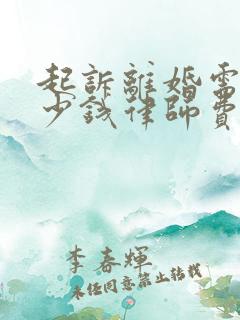 起訴離婚需
少錢律師費
李春輝
未經同意禁止转载